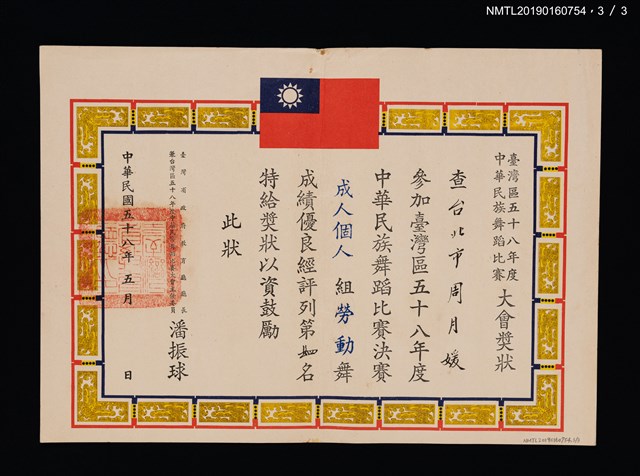 NMTL20190160754・3/3
臺灣區五十八年度
中華民族舞蹈比賽
大會獎狀
查台北市周月媛
參加臺灣區五十八年度
中華民族舞蹈比賽決賽
成人個人組勞動舞
成績優良經評列第四名
特給獎狀以資鼓勵
此狀
臺灣省政府教育廳廳長
潘振球
中華民國五十八年五月 日
NMTL20190160754